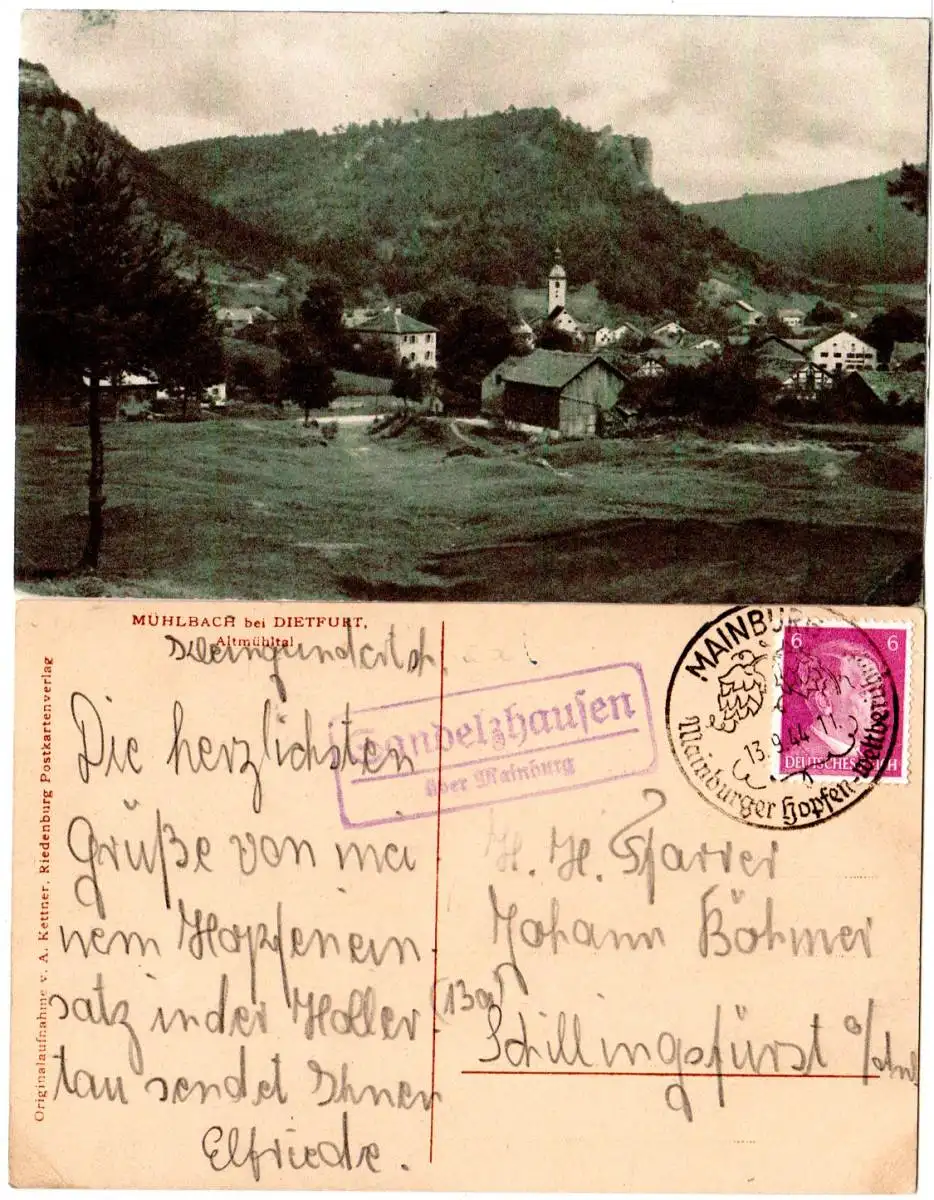 MÜHLBACH bei DIETFURT,
Altmühltal
Originalaufnahme v. A. Kettner, Riedenburg Postkartenverlag
Die herzlichsten
Grüße von mei
nem Hopfenein
satz in der Holler
tau sendet Ihnen
Elfriede.
Sandelzhausen
über Mainburg
MAINBURG
13.9.44.-11
Mainburger Hopfen-weltberühmt
6 6
DEUTSCHES REICH
H. H. Pfarrer
Johann Böhmer
(13a)
Schillingsfürst